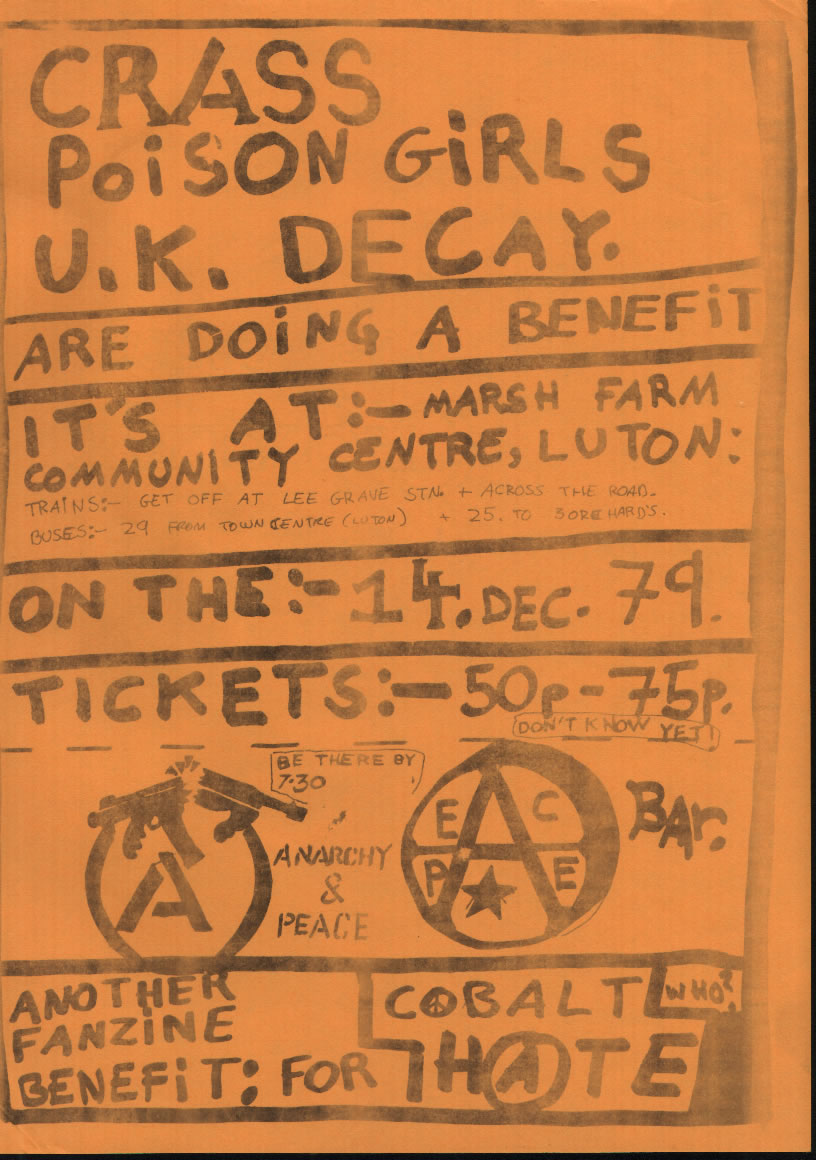 CRASS
POiSON GiRLS
U.K. DECAY.
ARE DOiNG A BENEFiT
IT'S AT:- MARSH FARM
COMMUNiTY CENTRE, LUTON:
TRAINS:- GET OFF AT LEE GRAVE STN. + ACROSS THE ROAD.
BUSES:- 29 FROM TOWN CENTRE (LUTON) + 25. TO
ON THE:- 14. DEC. 79.
TICKETS:- 50p - 75p.
DON'T KNOW YET!
BE THERE BY
7.30
A
ANARCHY
&
PEACE
E A C
P E
BAr.
ANOTHER
FANZiNE
BENEFiT: FOR
COBALT
HATE
WHO?